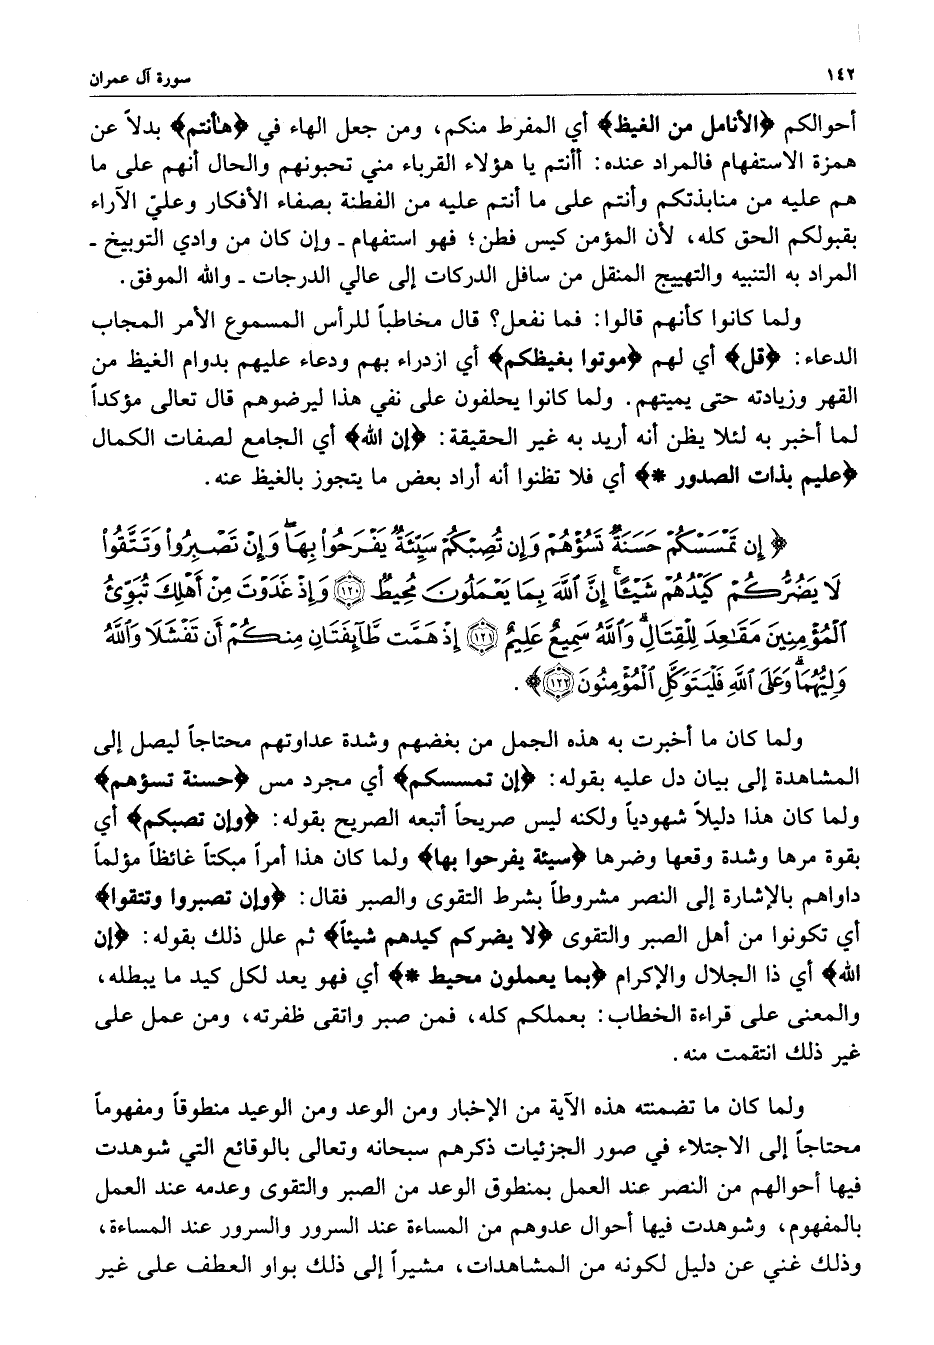 ١٤٢ سورة آل عمران
أحوالكم ﴿الأنامل من الغيظ﴾ أي المفرط منكم، ومن جعل الهاء في ﴿هأنتم﴾ بدلاً عن
همزة الاستفهام فالمراد عنده: أأنتم يا هؤلاء القرباء مني تحبونهم والحال أنهم على ما
هم عليه من منابذتكم وأنتم على ما أنتم عليه من الفطنة بصفاء الأفكار وعليّ الآراء
بقبولكم الحق كله، لأن المؤمن كيس فطن؛ فهو استفهام ـ وإن كان من وادي التوبيخ ـ
المراد به التنبيه والتهييج المنقل من سافل الدركات إلى عالي الدرجات ـ والله الموفق.
ولما كانوا كأنهم قالوا: فما نفعل؟ قال مخاطباً للرأس المسموع الأمر المجاب
الدعاء: ﴿قل﴾ أي لهم ﴿موتوا بغيظكم﴾ أي ازدراء بهم ودعاء عليهم بدوام الغيظ من
القهر وزيادته حتى يميتهم. ولما كانوا يحلفون على نفي هذا ليرضوهم قال تعالى مؤكداً
لما أخبر به لئلا يظن أنه أريد به غير الحقيقة: ﴿إن الله﴾ أي الجامع لصفات الكمال
﴿عليم بذات الصدور *﴾ أي فلا تظنوا أنه أراد بعض ما يتجوز بالغيظ عنه.
﴿إِن تَمْسَسْكُمْ حَسَنَةٌ تَسُؤْهُمْ وَإِن تُصِبْكُمْ سَيِّئَةٌ يَفْرَحُوا۟ بِهَا ۖ وَإِن تَصْبِرُوا۟ وَتَتَّقُوا۟
لَا يَضُرُّكُمْ كَيْدُهُمْ شَيْـًٔا ۗ إِنَّ ٱللَّهَ بِمَا يَعْمَلُونَ مُحِيطٌ ١٢٠ وَإِذْ غَدَوْتَ مِنْ أَهْلِكَ تُبَوِّئُ
ٱلْمُؤْمِنِينَ مَقَـٰعِدَ لِلْقِتَالِ ۗ وَٱللَّهُ سَمِيعٌ عَلِيمٌ ١٢١ إِذْ هَمَّت طَّآئِفَتَانِ مِنكُمْ أَن تَفْشَلَا وَٱللَّهُ
وَلِيُّهُمَا ۗ وَعَلَى ٱللَّهِ فَلْيَتَوَكَّلِ ٱلْمُؤْمِنُونَ ١٢٢﴾.
ولما كان ما أخبرت به هذه الجمل من بغضهم وشدة عداوتهم محتاجاً ليصل إلى
المشاهدة إلى بيان دل عليه بقوله: ﴿إن تمسسكم﴾ أي مجرد مس ﴿حسنة تسؤهم﴾
ولما كان هذا دليلاً شهودياً ولكنه ليس صريحاً أتبعه الصريح بقوله: ﴿وإن تصبكم﴾ أي
بقوة مرها وشدة وقعها وضرها ﴿سيئة يفرحوا بها﴾ ولما كان هذا أمراً مبكتاً غائظاً مؤلماً
داواهم بالإشارة إلى النصر مشروطاً بشرط التقوى والصبر فقال: ﴿وإن تصبروا وتتقوا﴾
أي تكونوا من أهل الصبر والتقوى ﴿لا يضركم كيدهم شيئاً﴾ ثم علل ذلك بقوله: ﴿إن
الله﴾ أي ذا الجلال والإكرام ﴿بما يعملون محيط *﴾ أي فهو يعد لكل كيد ما يبطله،
والمعنى على قراءة الخطاب: بعملكم كله، فمن صبر واتقى ظفرته، ومن عمل على
غير ذلك انتقمت منه.
ولما كان ما تضمنته هذه الآية من الإخبار ومن الوعد ومن الوعيد منطوقاً ومفهوماً
محتاجاً إلى الاجتلاء في صور الجزئيات ذكرهم سبحانه وتعالى بالوقائع التي شوهدت
فيها أحوالهم من النصر عند العمل بمنطوق الوعد من الصبر والتقوى وعدمه عند العمل
بالمفهوم، وشوهدت فيها أحوال عدوهم من المساءة عند السرور والسرور عند المساءة،
وذلك غني عن دليل لكونه من المشاهدات، مشيراً إلى ذلك بواو العطف على غير